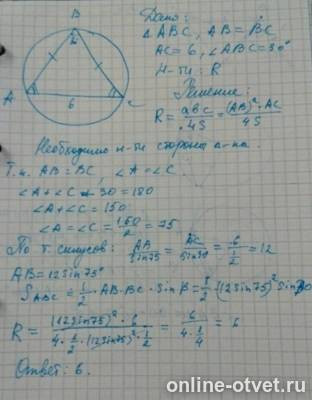 B
Дано:
△ABC, AB = BC
AC = 6, ∠ABC = 30°
Н-ти: R
A
6
C
Решение:
R = abc/4S = (AB)²·AC/4S
Необходимо н-ти стороны
Т.к. AB = BC, ∠A = ∠C.
∠A + ∠C + 30 = 180
∠A + ∠C = 150
∠A = ∠C = 150/2 = 75
По т. синусов: AB/sin75 = AC/sin30 = 6/(1/2) = 12
AB = 12 sin75°
S ABC = 1/2 · AB · BC · sin β = 1/2 · (12 sin75)² sin30
R = (12 sin75)² · 6 / (4 · 1/2 · (12 sin75)² · 1/2) = 6/(4 · 1/4) = 6
Ответ: 6.
online-otvet.ru